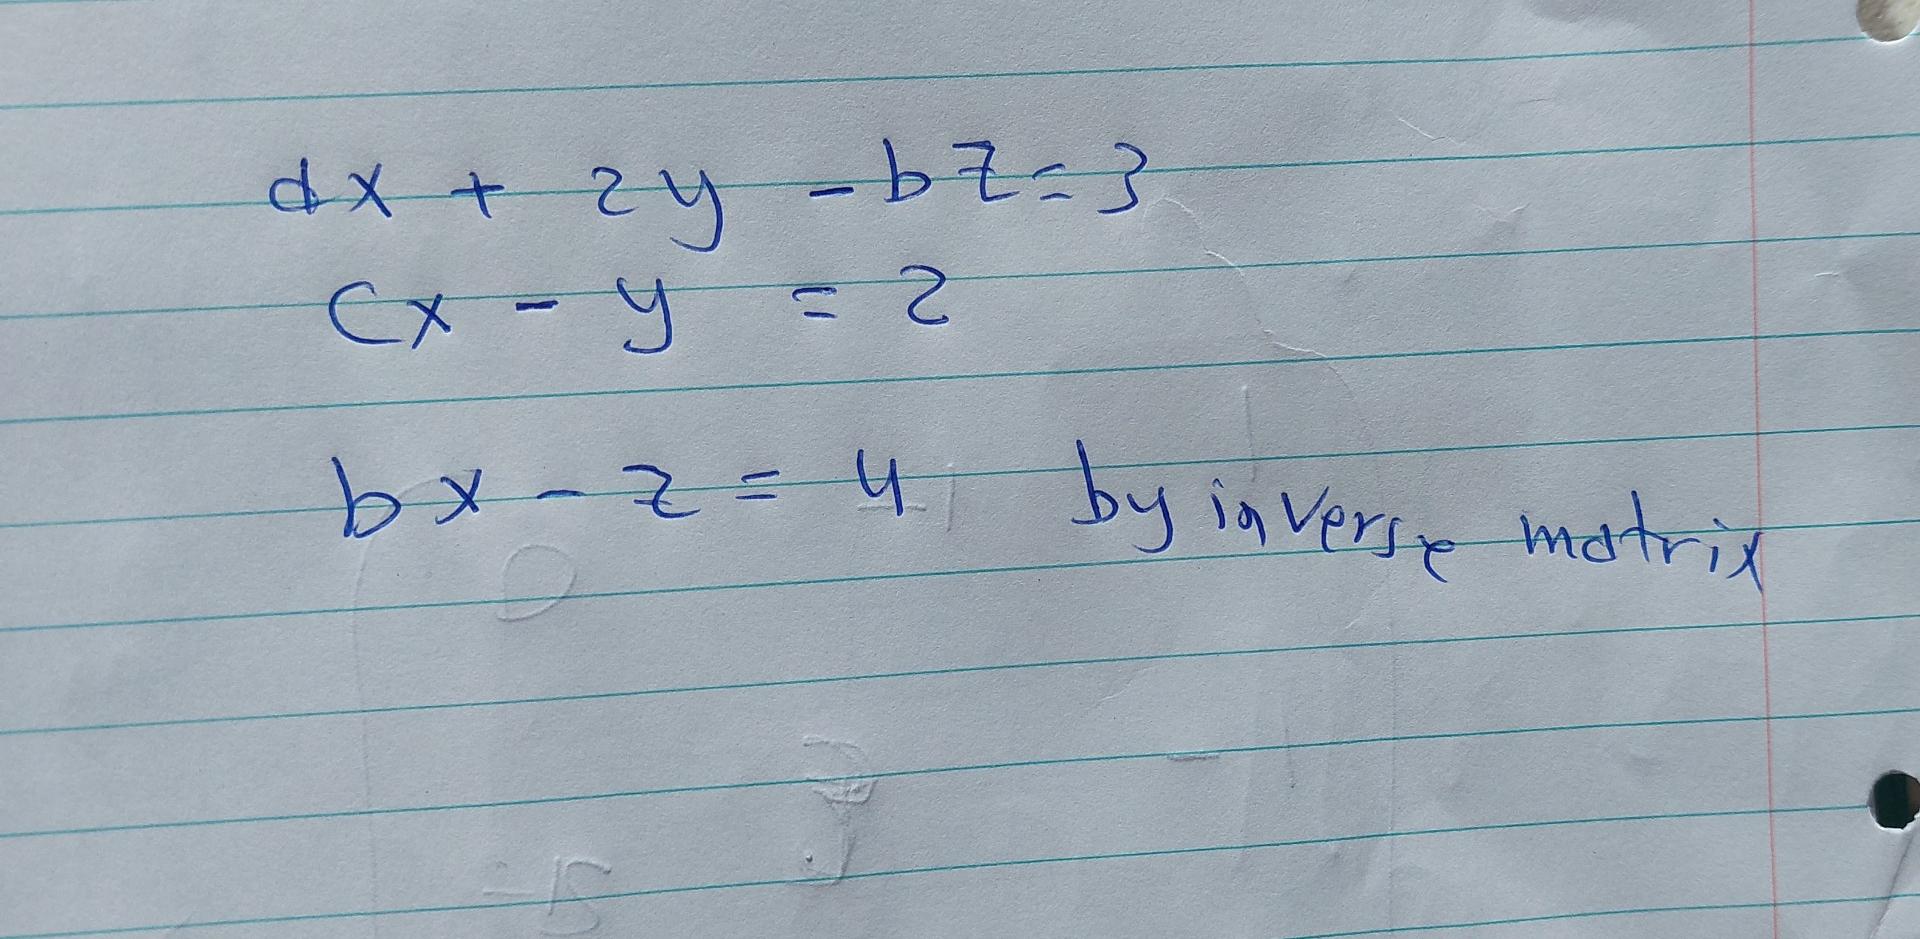 dx + 2y - bz = 3
cx - y = 2
bx - z = 4 by inverse matrix